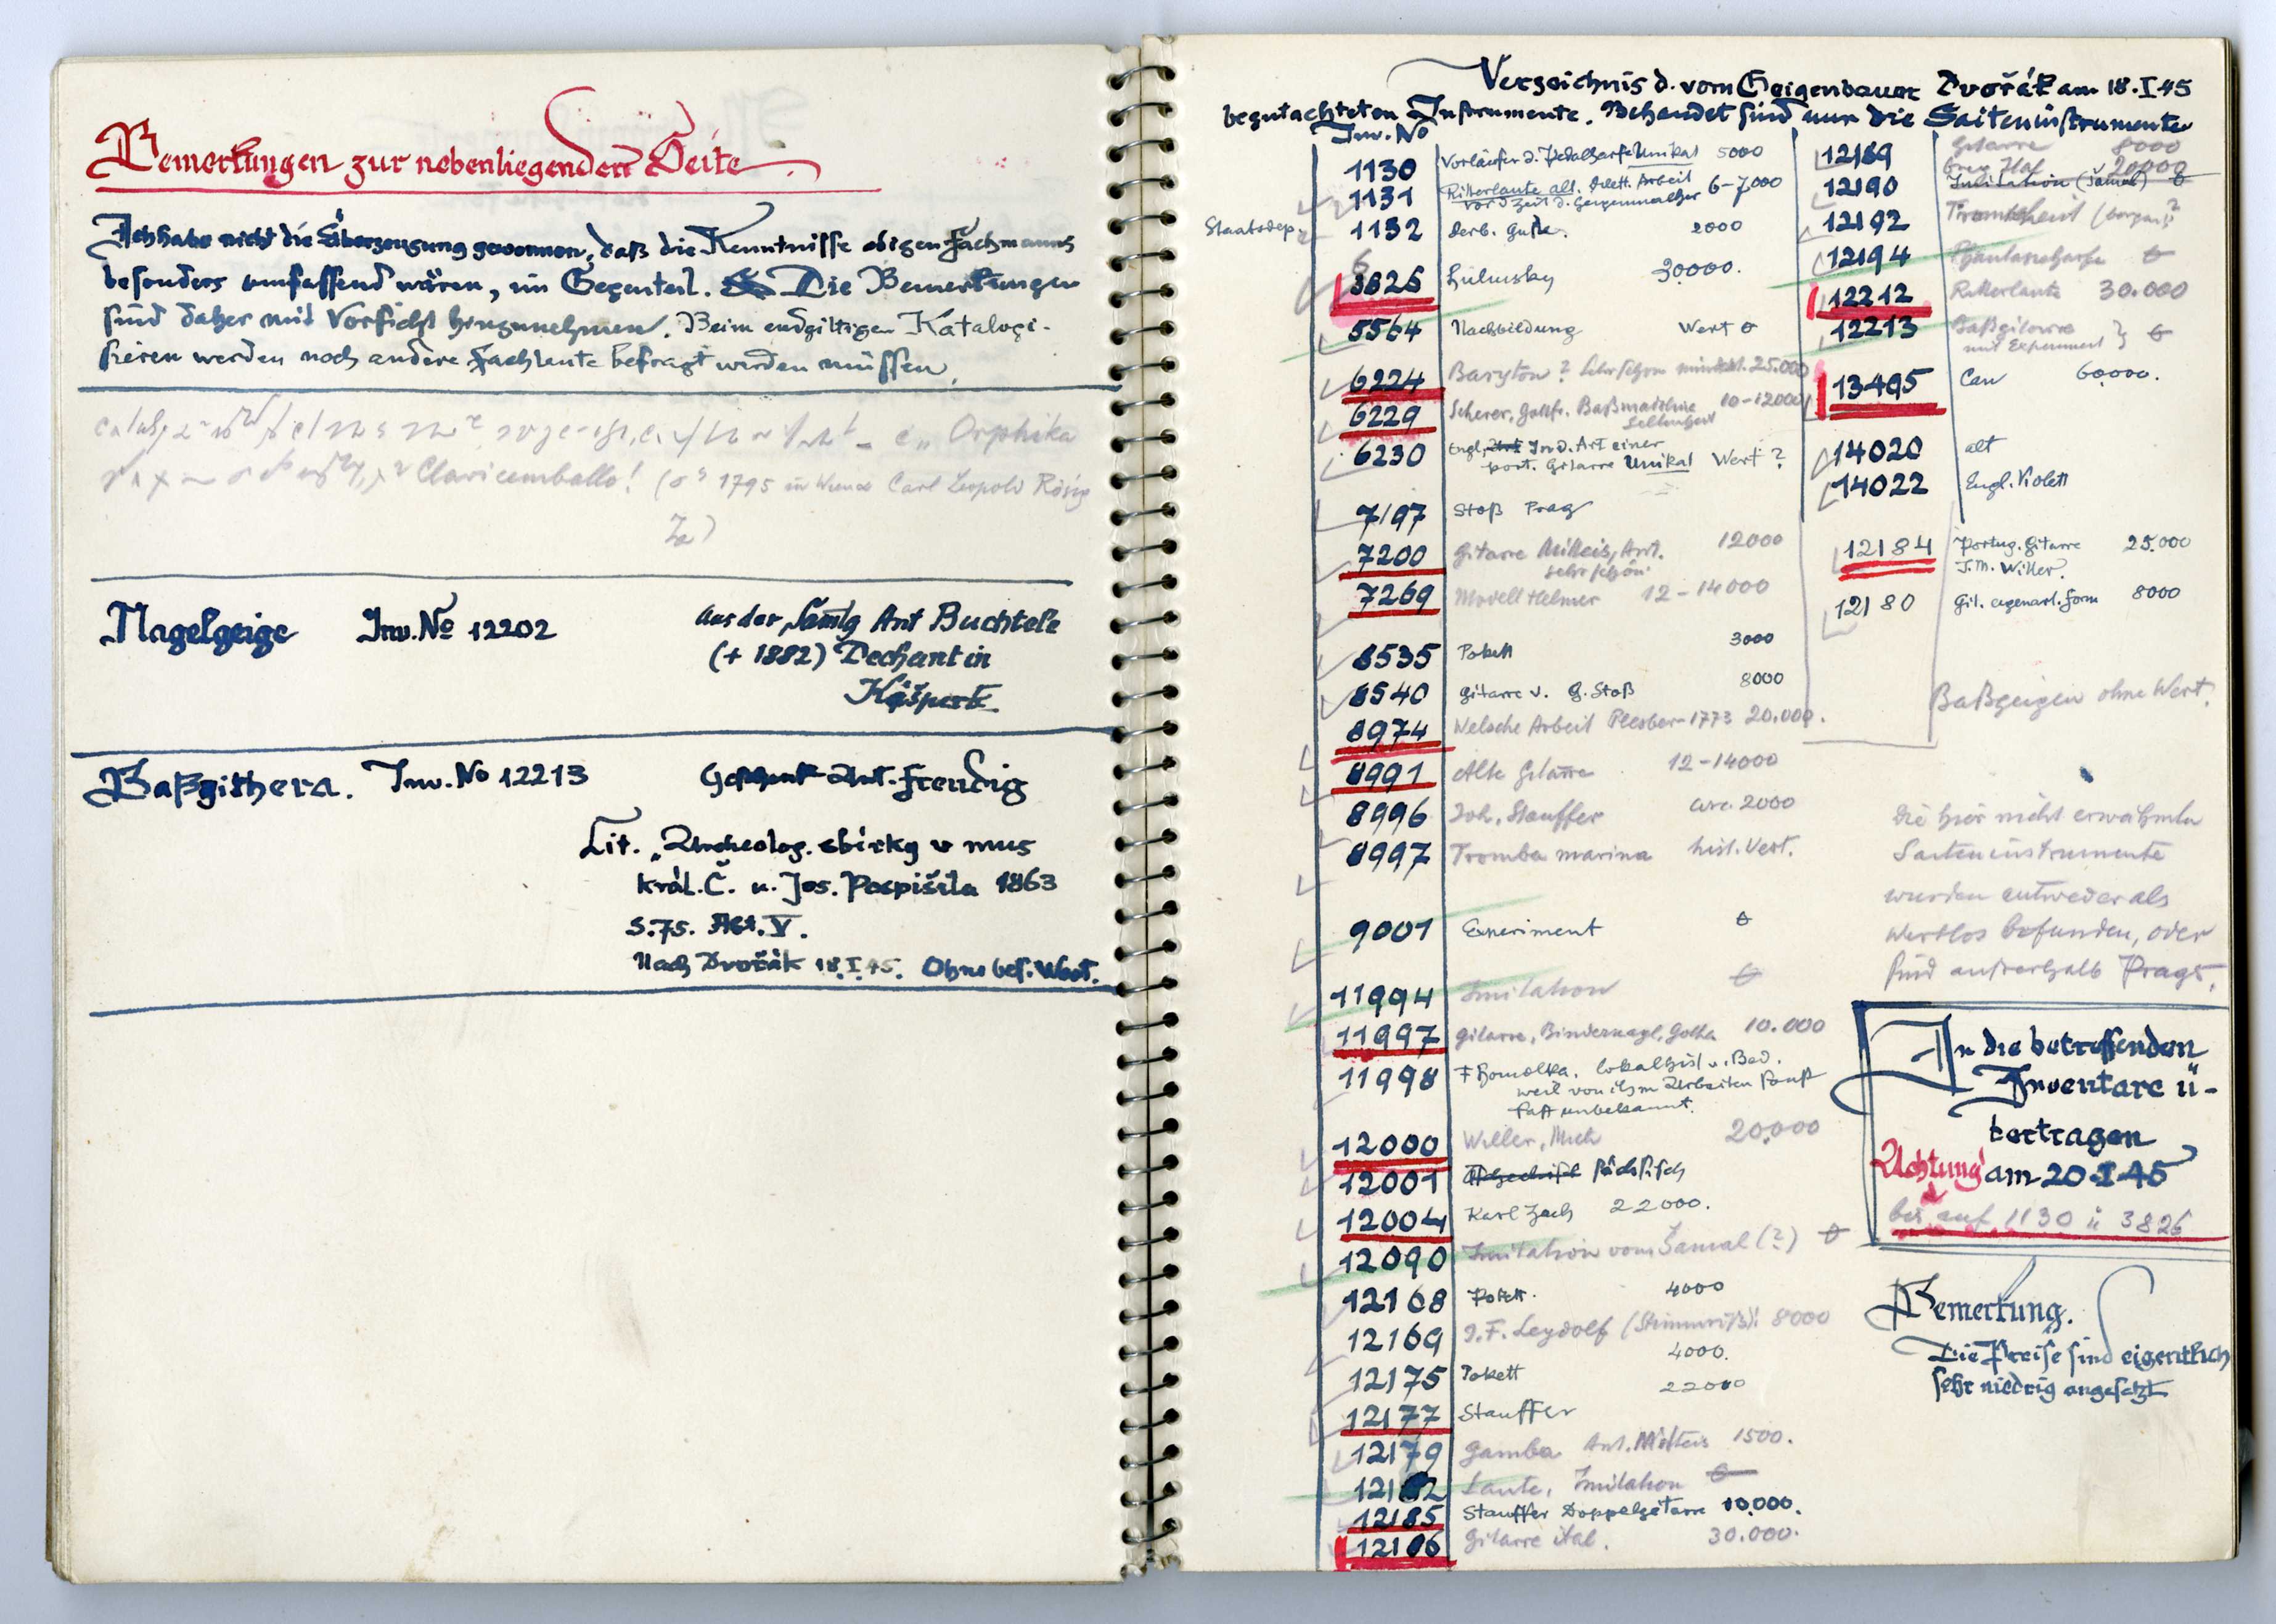 Bemerkungen zur nebenliegenden Seite.
Ich habe nicht die Überzeugung gewonnen, daß die Kenntnisse obigen Fachmanns
besonders umfassend wären, im Gegenteil. Die Bemerkungen
sind daher mit Vorsicht hinzunehmen. Beim endgiltigen Katalogi-
sieren werden noch andere Fachleute befragt werden müssen.
Orphika
Clavicemballo! 1795 in Carl Leopold Rösig
Nagelgeige Inv. No 12202 Aus der Samlg Ant Buchtele
(+ 1882) Dechant in
Baßgithera. Inv. No 12213 Geschenk Ant. Freudig
Lit. „Archeolog. sbírky v mus
král. Č. u. Jos. Pospíšila 1863
S. 75. Abt. V.
Nach Dvořák 18.I.45. Ohne bes. Wert.
Verzeichnis d. vom Geigenbauer Dvořák am 18.I.45
begutachteten Instrumente. Behandet sind nur die Saiteninstrumente
Inv. No
1130 Vorläufer d. Pedalharfe Unikat 5000
1131 Ritterlaute alt. Dilett. Arbeit 6-7,000
vor d Zeit d. Geigenmacher
Staatsdep 1132 derb. Gute. 2000
3826 Hulinsky 30.000.
5564 Nachbildung Wert 0
6224 Baryton? Sehr schön mindest. 25.000
6229 Scherer, Gottfr. Baßmaschine 10-12000
Seltenheit
6230 Engl. Ind. Art einer
port. Gitarre Unikat Wert?
7197 Stoß Prag
7200 Gitarre Mitteis, Ant. 12000
sehr schön
7269 Modell Helmer 12-14000
8535 Pokett 3000
8540 Gitarre v. G. Stoß 8000
8974 Welsche Arbeit 1773 20.000.
8991 Alte Gitarre 12-14000
8996 Joh. Stauffer circ. 2000
8997 Tromba marina hist. Wert.
9001 Experiment 0
11994 Imitation 0
11997 Gitarre, Bindernagl, Gotha 10.000
11998 F Homolka. lokalhist v. Bed.
weil von ihm Arbeiten sonst
fast unbekannt.
12000 Willer, Mich 20.000
12001 sächsisch
12004 Karl Zach 22000.
12090 Imitation vom Šamal (?) 0
12168 Pokett. 4000
12169 J. F. Leydolf (Stimmriß)! 8000
12175 Pokett 4000.
12177 Stauffer 22000
12179 Gamba Ant. Mitteis 1500.
12182 Laute, Imitation 0
12185 Stauffer Doppelgitarre 10.000.
12186 Gitarre ital. 30.000.
12189 Gitarre 8000
12190 Imitation (Šamal) 20000
12192 Trombscheit
12194 0
12212 Ritterlaute 30.000
12213 Baßgitarre
mit Experiment } 0
13495 Cau 60.000.
14020 alt
14022 Engl. Violett
12184 Portug. Gitarre 25.000
J. M. Willer.
12180 Git. eigenart. Form 8000
Baßgeigen ohne Wert.
Die hier nicht erwähnten
Saiteninstrumente
wurden entweder als
Wertlos befunden, oder
sind außerhalb Prags.
In die betreffenden
Inventare ü-
bertragen
Achtung am 20.I.45
bis auf 1130 u 3826
Bemerkung.
Die Preise sind eigentlich
sehr niedrig angesetzt